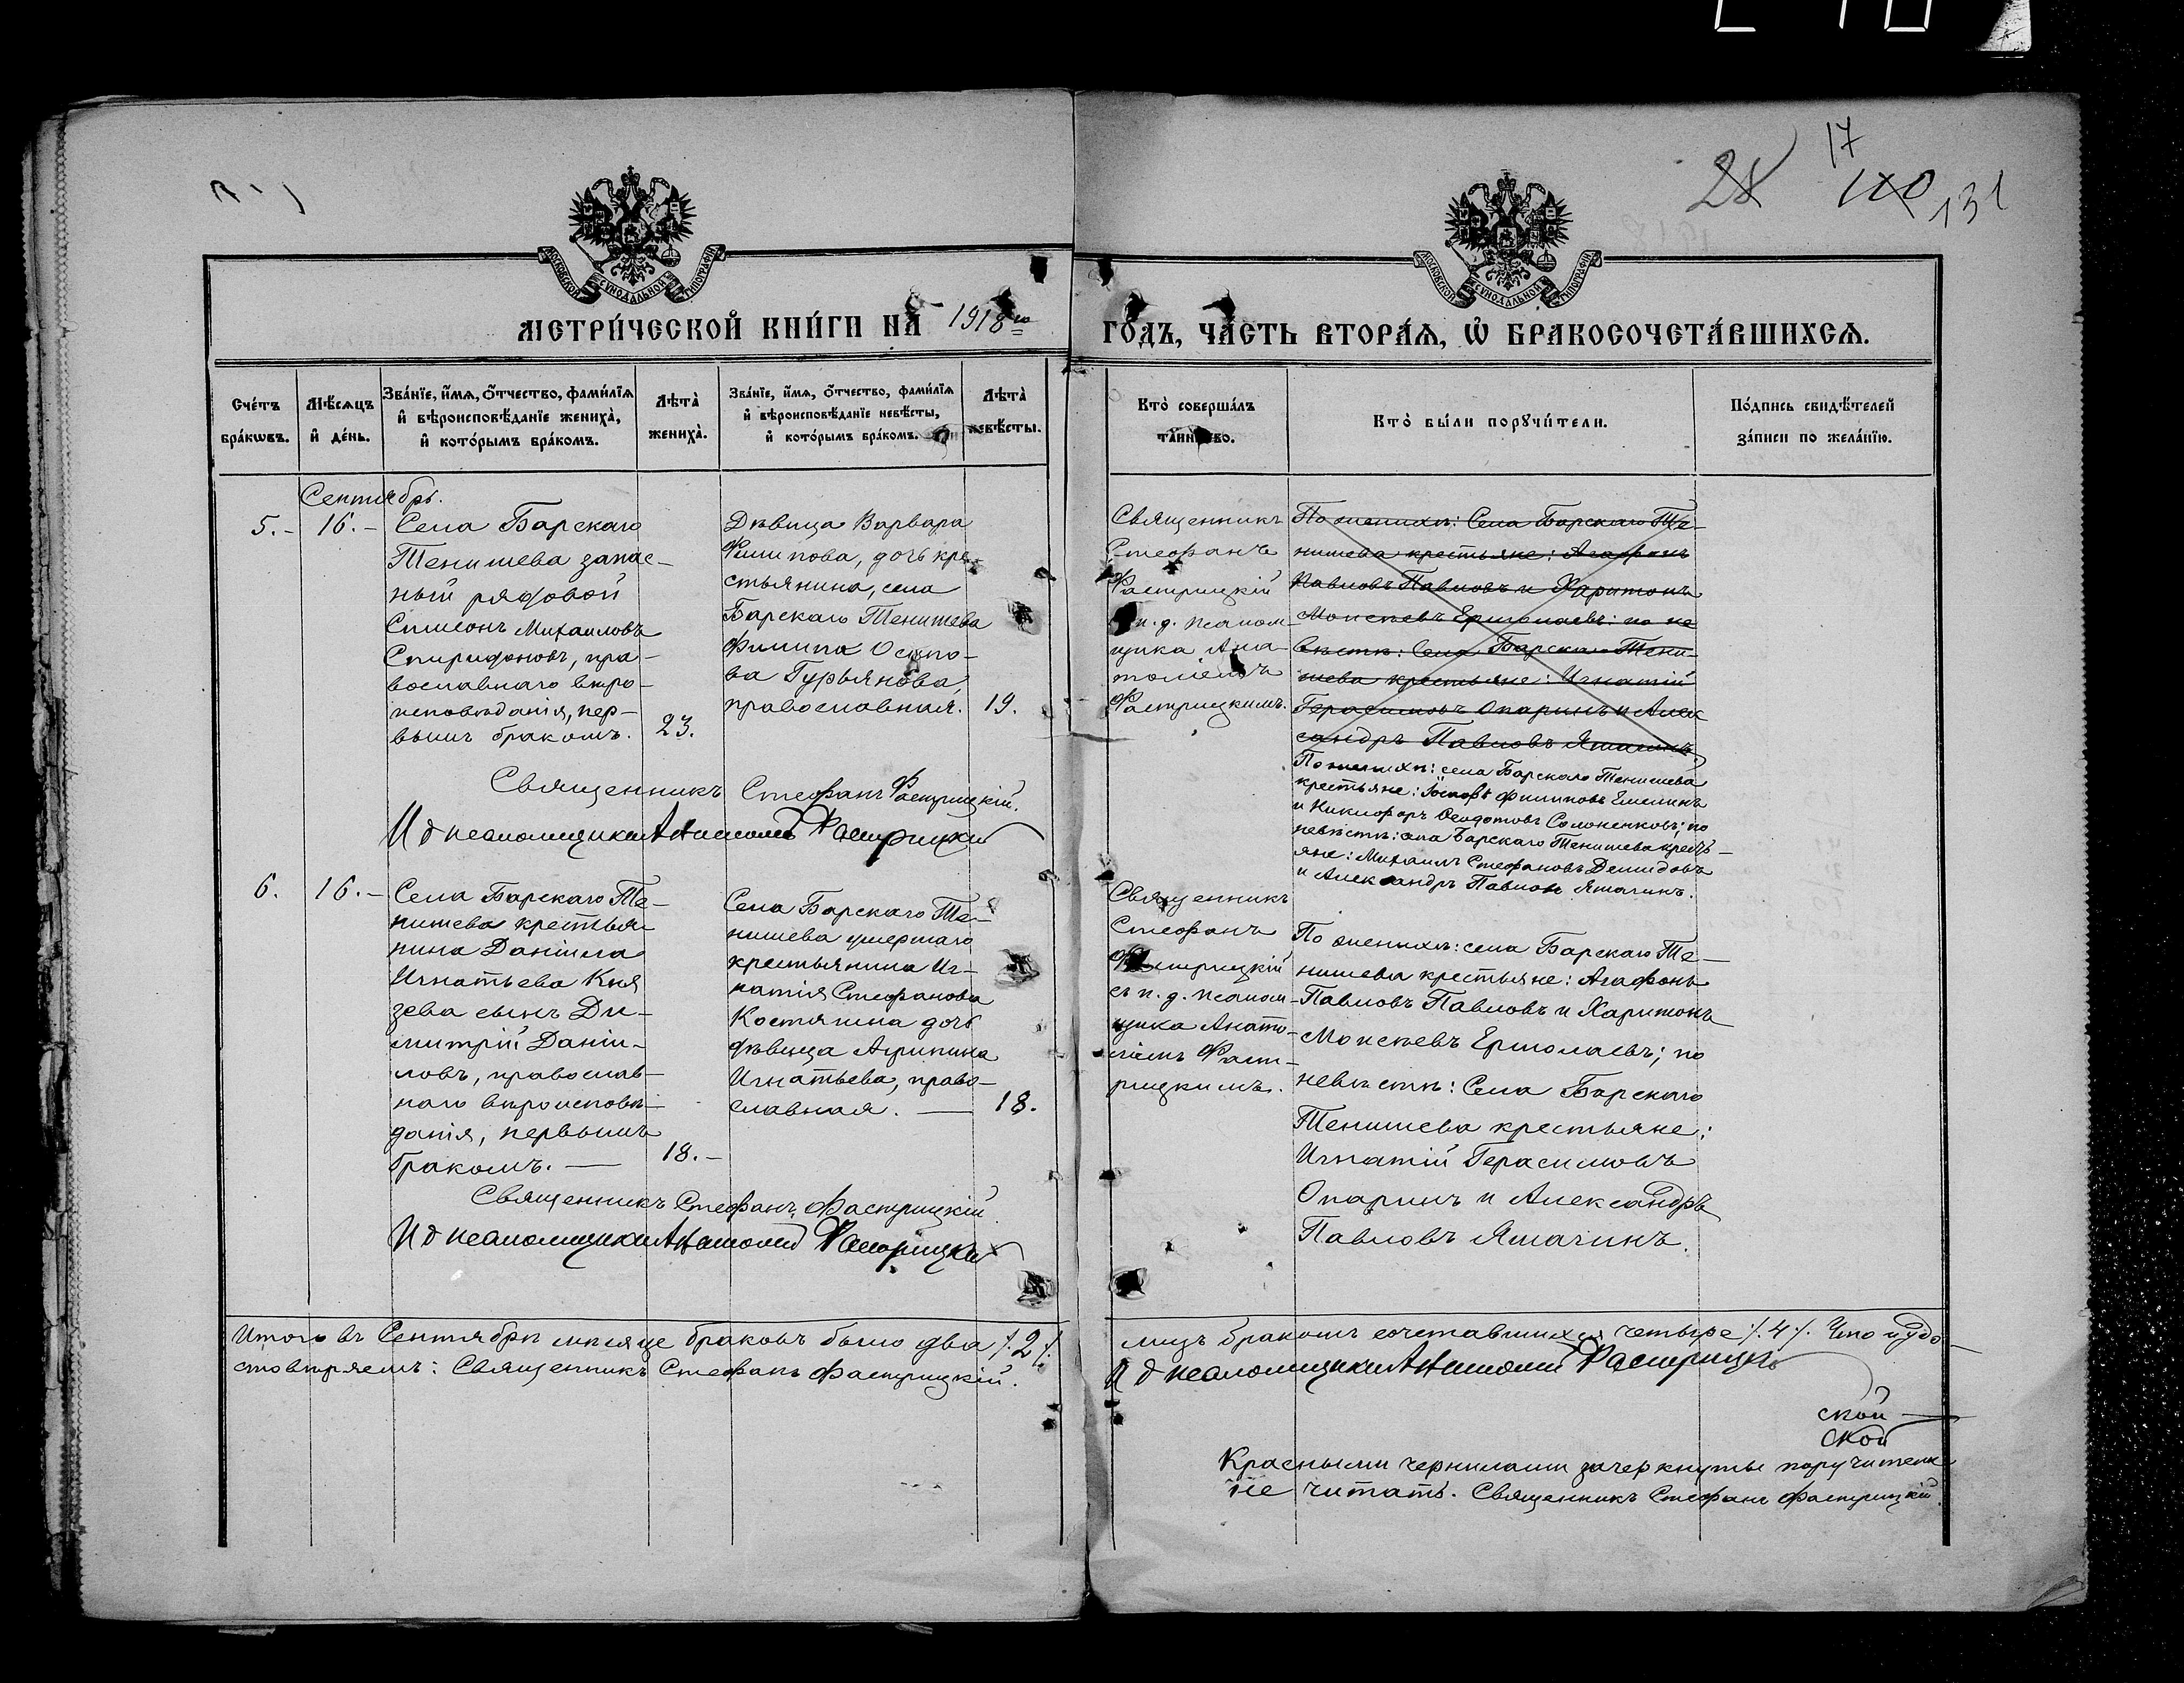 17
28 100 131
МОСКОВСКОЙ СѴНОДАЛЬНОЙ ТИПОГРАФІИ
МОСКОВСКОЙ СѴНОДАЛЬНОЙ ТИПОГРАФІИ
МЕТРИ́ЧЕСКОЙ КНИ́ГИ НА 1918го
ГО́ДЪ, ЧА́СТЬ ВТОРА́Ѧ, Ѡ҆ БРАКОСОЧЕТА́ВШИХСѦ.
Сче́тъ
бра́кѡвъ.
Мѣ́сѧцъ
и҆ де́нь.
Зва́нїе, и҆́мѧ, ѻ҆́тчество, фами́лїѧ
и҆ вѣроисповѣ́данїе жениха̀,
и҆ кото́рымъ бра́комъ.
Лѣта̀
жениха̀.
Зва́нїе, и҆́мѧ, ѻ҆́тчество, фами́лїѧ
и҆ вѣроисповѣ́данїе невѣ́сты,
и҆ кото́рымъ бра́комъ.
Лѣта̀
невѣ́сты.
Кто̀ соверша́лъ
та́инство.
Кто̀ бы́ли порꙋчи́тели.
По́дпись свидѣ́телей
за́писи по жела́нїю.
Сентябрь.
5.- 16.-
Села Барскаго
Тенишева запас-
ный рядовой
Симеонъ Михаиловъ
Спиридоновъ, пра-
вославнаго вѣро-
исповѣданія, пер-
вымъ бракомъ. 23.
Дѣвица Варвара
Филипова, дочь кре-
стьянина, села
Барскаго Тенишева
Филипа Осипо-
ва Гурьянова,
православная. 19.
Священникъ
Стефанъ
Фастрицкій
и. д. псалом-
щика Ана-
толіемъ
Фастрицкимъ.
По женихѣ: Села Барскаго Те-
нишева крестьяне: Агафонъ
Павловъ Павловъ и Харитонъ
Моисеевъ Ермолаевъ: по не
вѣстѣ: Села Барскаго Тени-
шева крестьяне: Игнатій
Герасимовъ Опаринъ и Алек
сандръ Павловъ Ямагинъ
По женихѣ: села Барскаго Тенишева
крестьяне: Іосифъ Филиповъ Емелинъ
и Никифоръ Ѳеодотовъ Солоненковъ; по
невѣстѣ: села Барскаго Тенишева кресть-
яне: Михаилъ Стефановъ Демидовъ
и Александръ Павловъ Ямагинъ.
Священникъ Стефанъ Фастрицкій.
И д псаломщика Анатолій Фастрицкій
6. 16.-
Села Барскаго Те-
нишева крестьяни
нина Даніила
Игнатьева Кня
зева сынъ Ди-
митрій Даніи-
ловъ, православ-
наго вѣроисповѣ-
данія, первымъ
бракомъ. — 18.-
Села Барскаго Те-
нишева умершаго
крестьянина Иг-
натія Стефанова
Костянина дочь
дѣвица Агрипина
Игнатьева, право-
славная. — 18.
Священникъ
Стефанъ
Фастрицкій
съ и. д. псалом-
щика Анато-
ліемъ Фаст-
рицкимъ.
По женихѣ: села Барскаго Те-
нишева крестьяне: Агафонъ
Павловъ Павловъ и Харитонъ
Моисеевъ Ермолаевъ; по
невѣстѣ: Села Барскаго
Тенишева крестьяне:
Игнатій Герасимовъ
Опаринъ и Александръ
Павловъ Ямагинъ.
Священникъ Стефанъ Фастрицкій
И д псаломщика Анатолій Фастрицкій
Итого въ Сентябрѣ мѣсяце браковъ было два /.2./
лицъ бракомъ сочетавшихся четыре /.4./. Что и удо-
стовѣряемъ: Священникъ Стефанъ Фастрицкій.
И д псаломщика Анатолій Фастрицкій
ской
ской
Красными чернилами зачеркнуты поручители
не читать. Священникъ Стефанъ Фастрицкій.